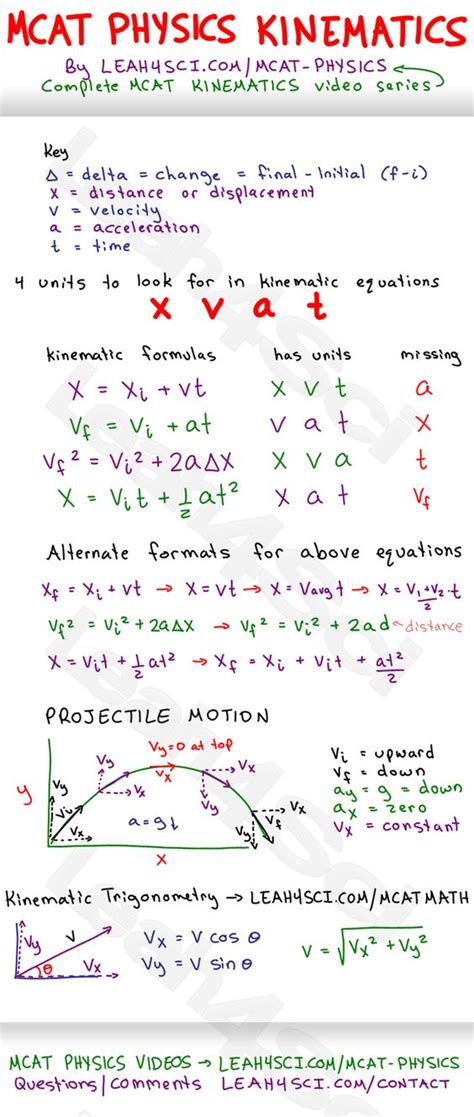 MCAT PHYSICS KINEMATICS
By LEAH4SCI.COM/MCAT-PHYSICS
Complete MCAT KINEMATICS video series
Key
Δ = delta = change = final - Initial (f-i)
X = distance or displacement
V = velocity
a = acceleration
t = time
4 units to look for in kinematic equations
X V a t
kinematic formulas has units missing
X = Xᵢ + vt X V t a
Vf = Vᵢ + at V a t X
Vf² = Vᵢ² + 2aΔX X V a t
X = Vᵢt + ½at² X a t Vf
Alternate formats for above equations
Xf = Xᵢ + vt → X = vt → X = Vavg t → X = V₁+V₂/2 · t
Vf² = Vᵢ² + 2aΔX → Vf² = Vᵢ² + 2ad ← distance
X = Vᵢt + ½at² → Xf = Xᵢ + Vᵢt + at²/2
PROJECTILE MOTION
Vy=0 at top
Vx
Vy
Vx
Vx
Vy
Vy
Vᵢ
Vx
Vx
Vf
Vy
a=g↓
y
X
Vᵢ = upward
Vf = down
ay = g = down
ax = zero
Vx = constant
Kinematic Trigonometry → LEAH4SCI.COM/MCATMATH
Vy
V
Vx
θ
Vx = V cos θ
Vy = V sin θ
V = √Vx² + Vy²
MCAT PHYSICS VIDEOS → LEAH4SCI.COM/MCAT-PHYSICS
Questions/Comments LEAH4SCI.COM/CONTACT
Leah4Sci
Leah4Sci
Leah4Sci